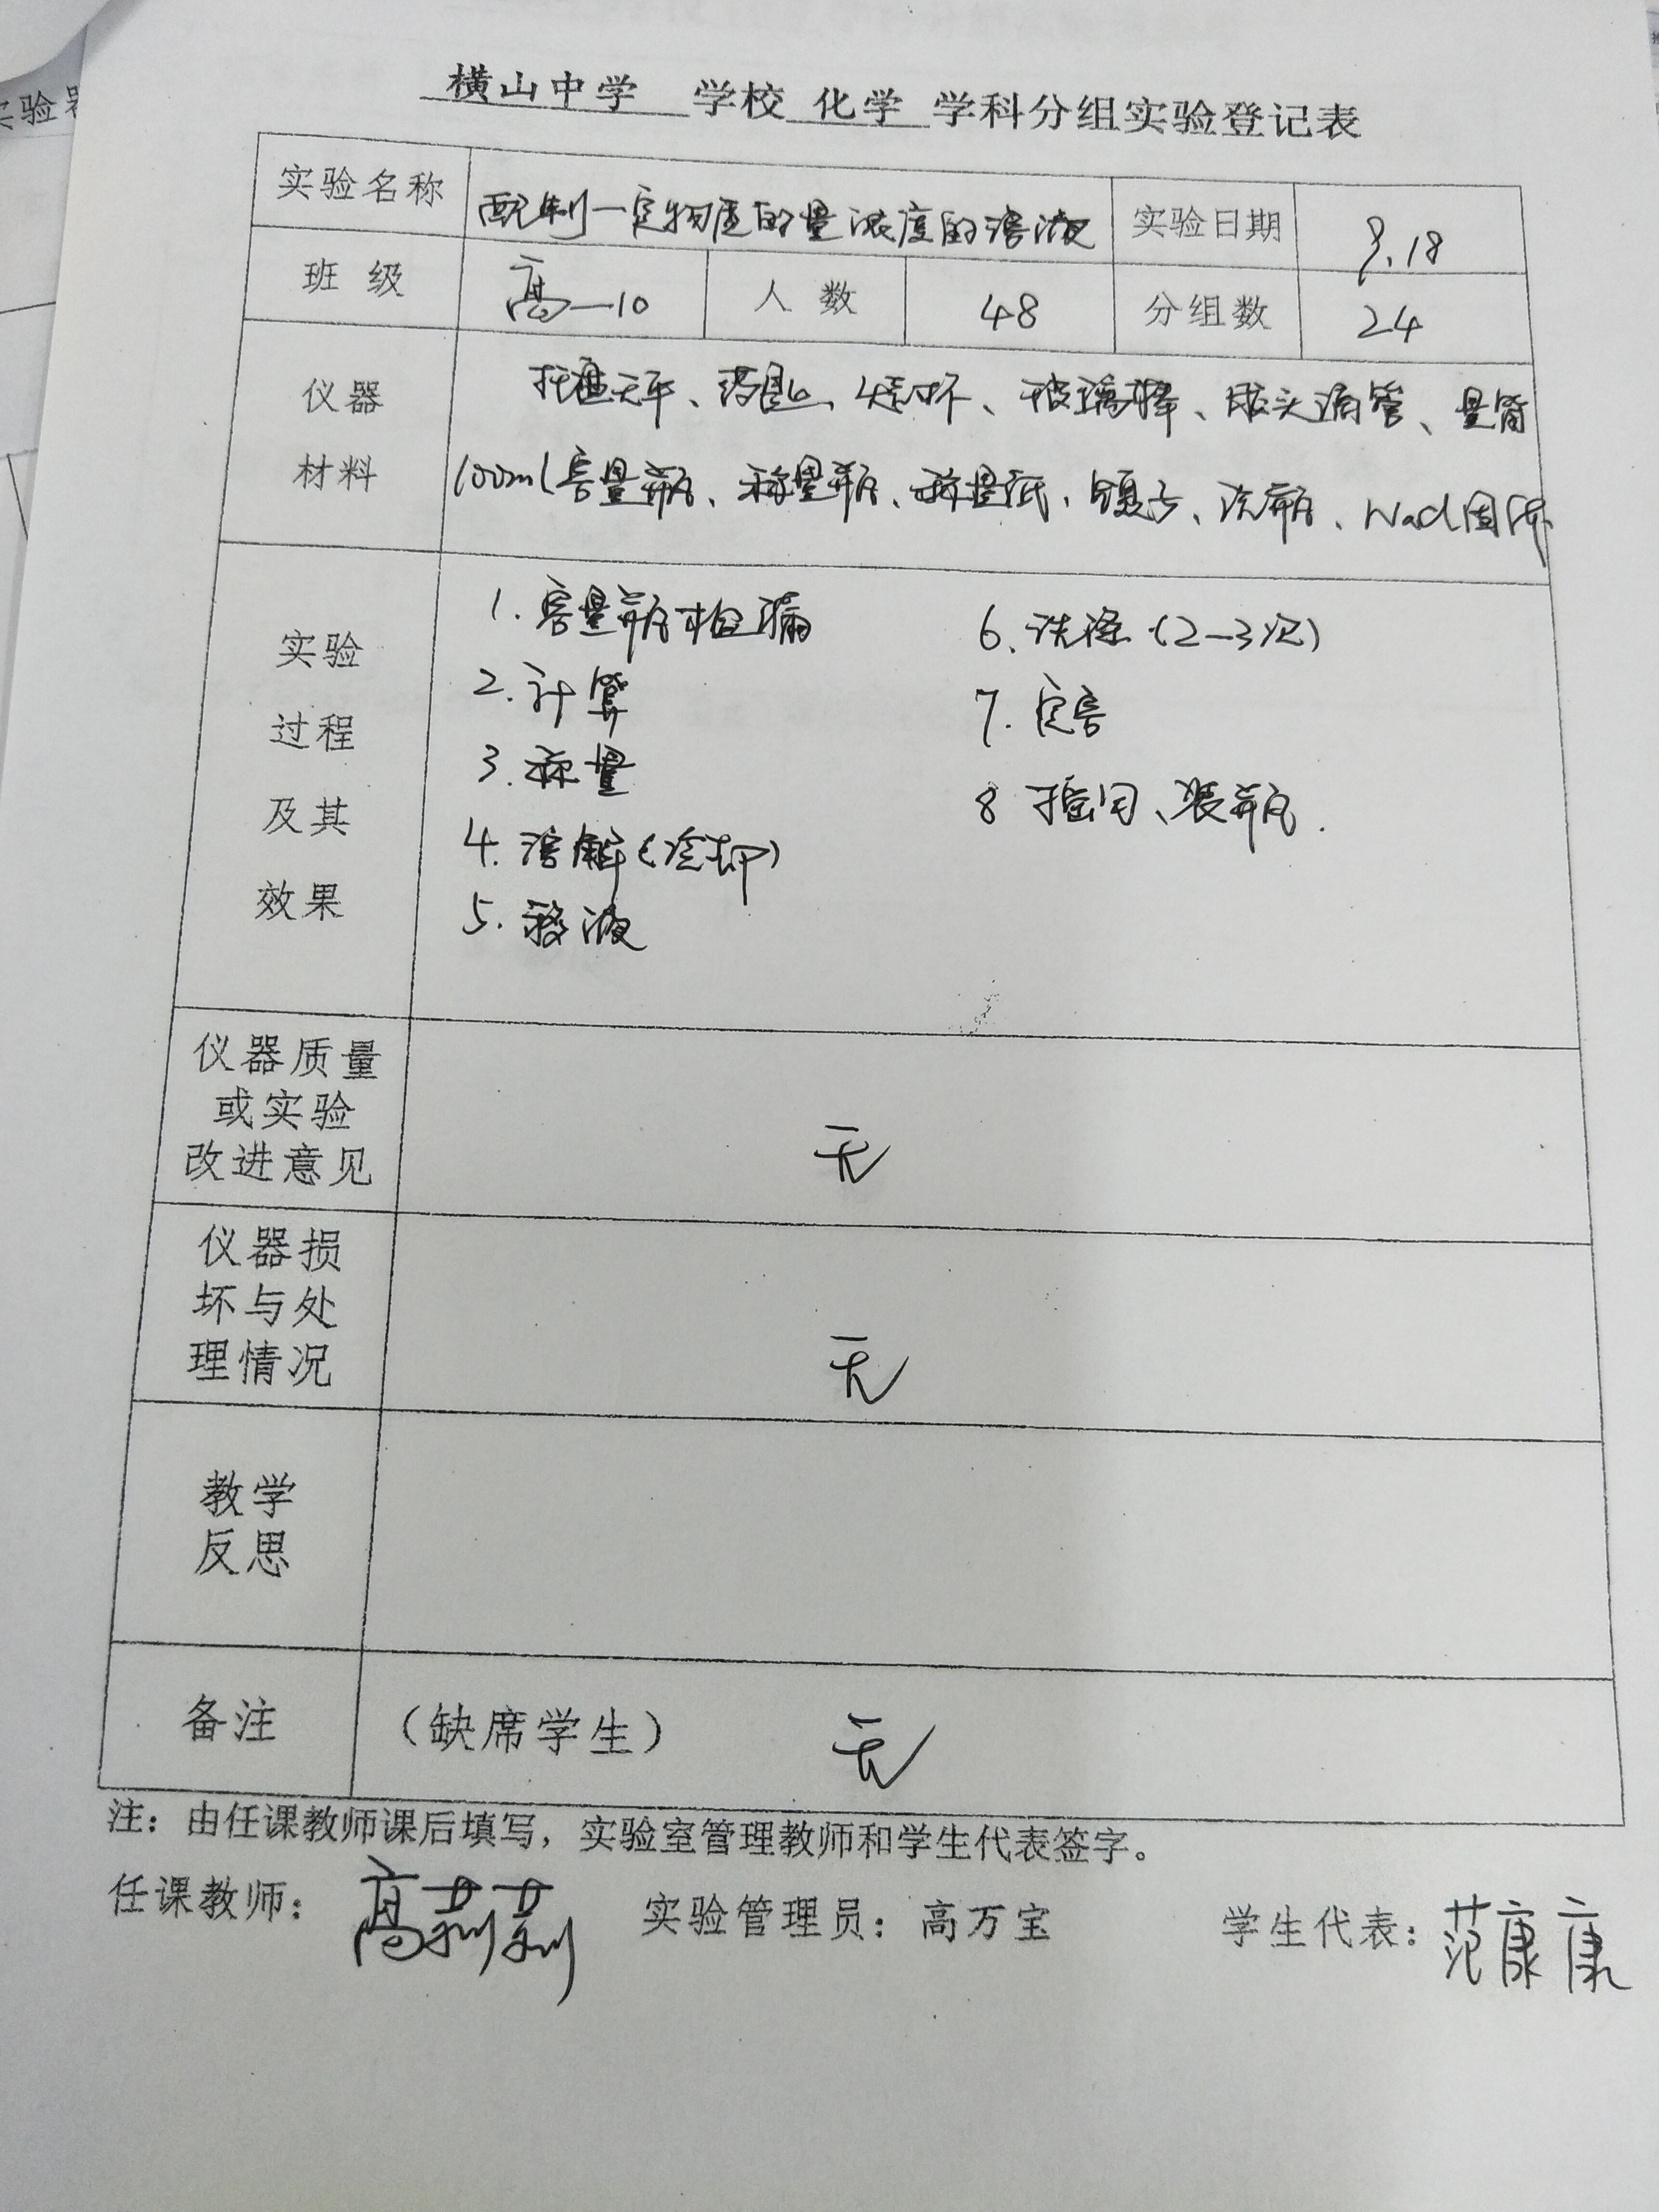 横山中学 学校 化学 学科分组实验登记表
实验名称 配制一定物质的量浓度的溶液 实验日期 9.18
班级 高一10 人数 48 分组数 24
仪器 托盘天平、药匙、烧杯、玻璃棒、胶头滴管、量筒
材料 100ml容量瓶、称量瓶、称量纸、镊子、洗瓶、NaCl固体
实验
过程
及其
效果
1.容量瓶检漏
2.计算
3.称量
4.溶解(冷却)
5.移液
6.洗涤(2-3次)
7.定容
8 摇匀、装瓶.
仪器质量
或实验
改进意见
无
仪器损
坏与处
理情况
无
教学
反思
备注 （缺席学生） 无
注：由任课教师课后填写，实验室管理教师和学生代表签字。
任课教师：高莉莉 实验管理员：高万宝 学生代表：范康康